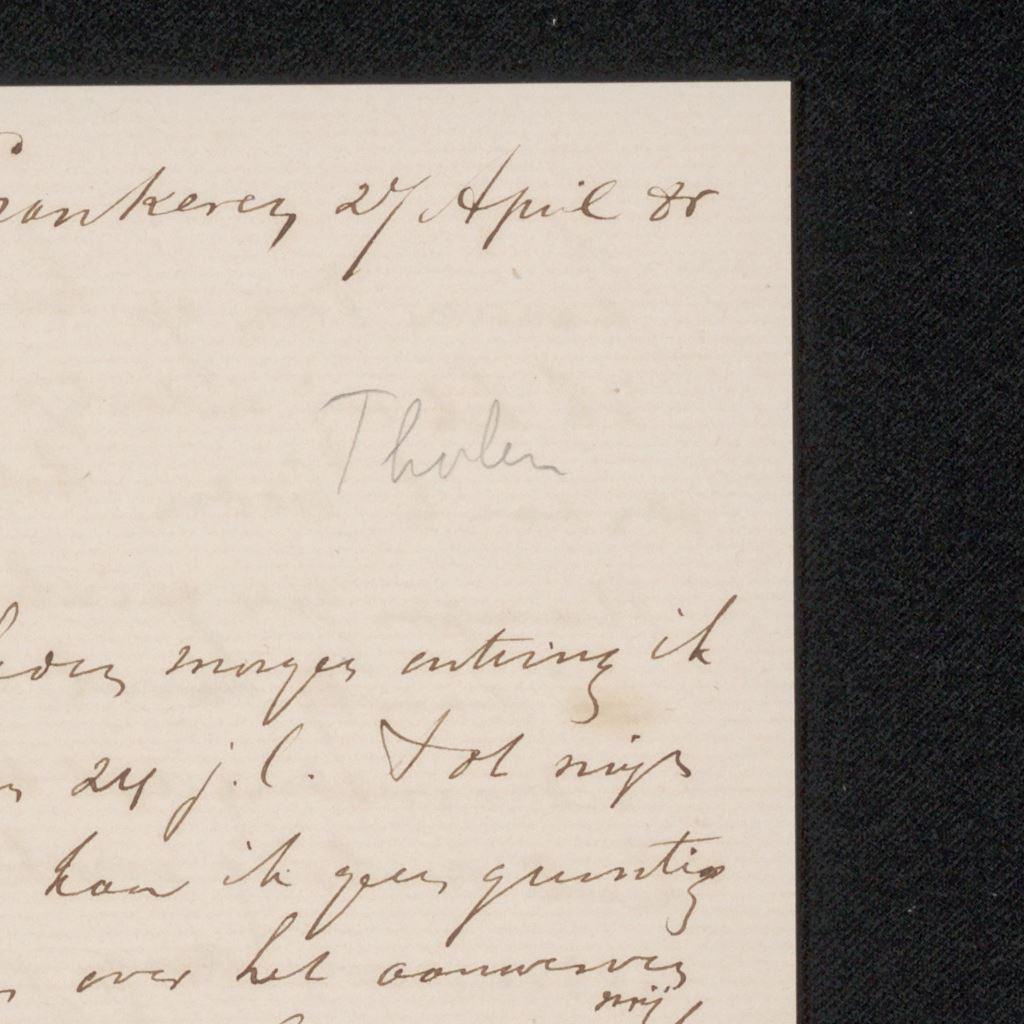 rankeren 27 April 88
Tholen
eden morgen ontving ik
n 24 j.l. Tot mijn
kan ik geen gunstig
n over het aanwerven
mij